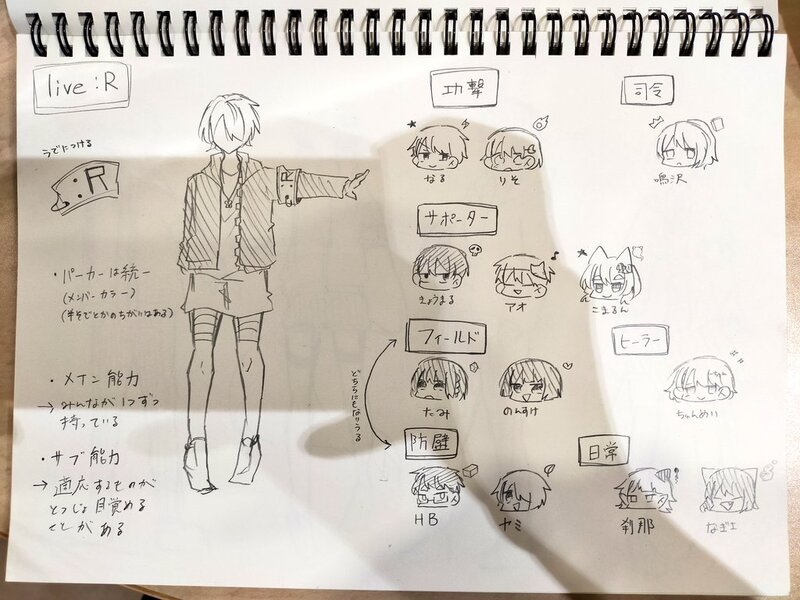 live:R
うでにつける
:R
・パーカーは統一
(メンバーカラー)
(半そでとかのちがいはある)
・メイン能力
→みんなが1つずつ
持っている
・サブ能力
→適応するものが
とつじょ目覚める
ことがある
R
功撃
なる
りそ
司令
鳴沢
サポーター
きょうまる
アオ
こまるん
フィールド
たみ
のんすけ
どちらにもなりうる
ヒーラー
ちゃんめい
防壁
HB
ヤミ
日常
刹那
なぎエ